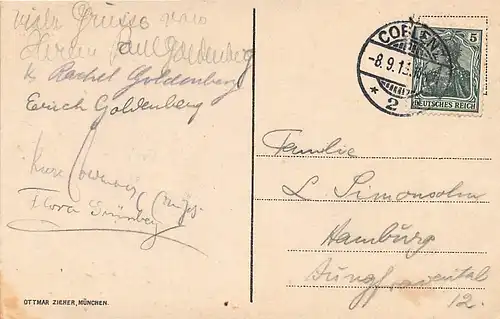 viele Grüsse von
Herren Paul Goldenberg
u. Rachel Goldenberg
Erich Goldenberg
Flora Grünberg
OTTMAR ZIEHER, MÜNCHEN.
COBLENZ
-8.9.13.
* 2
5
DEUTSCHES REICH
Familie
L Simonsohn
Hamburg
12.